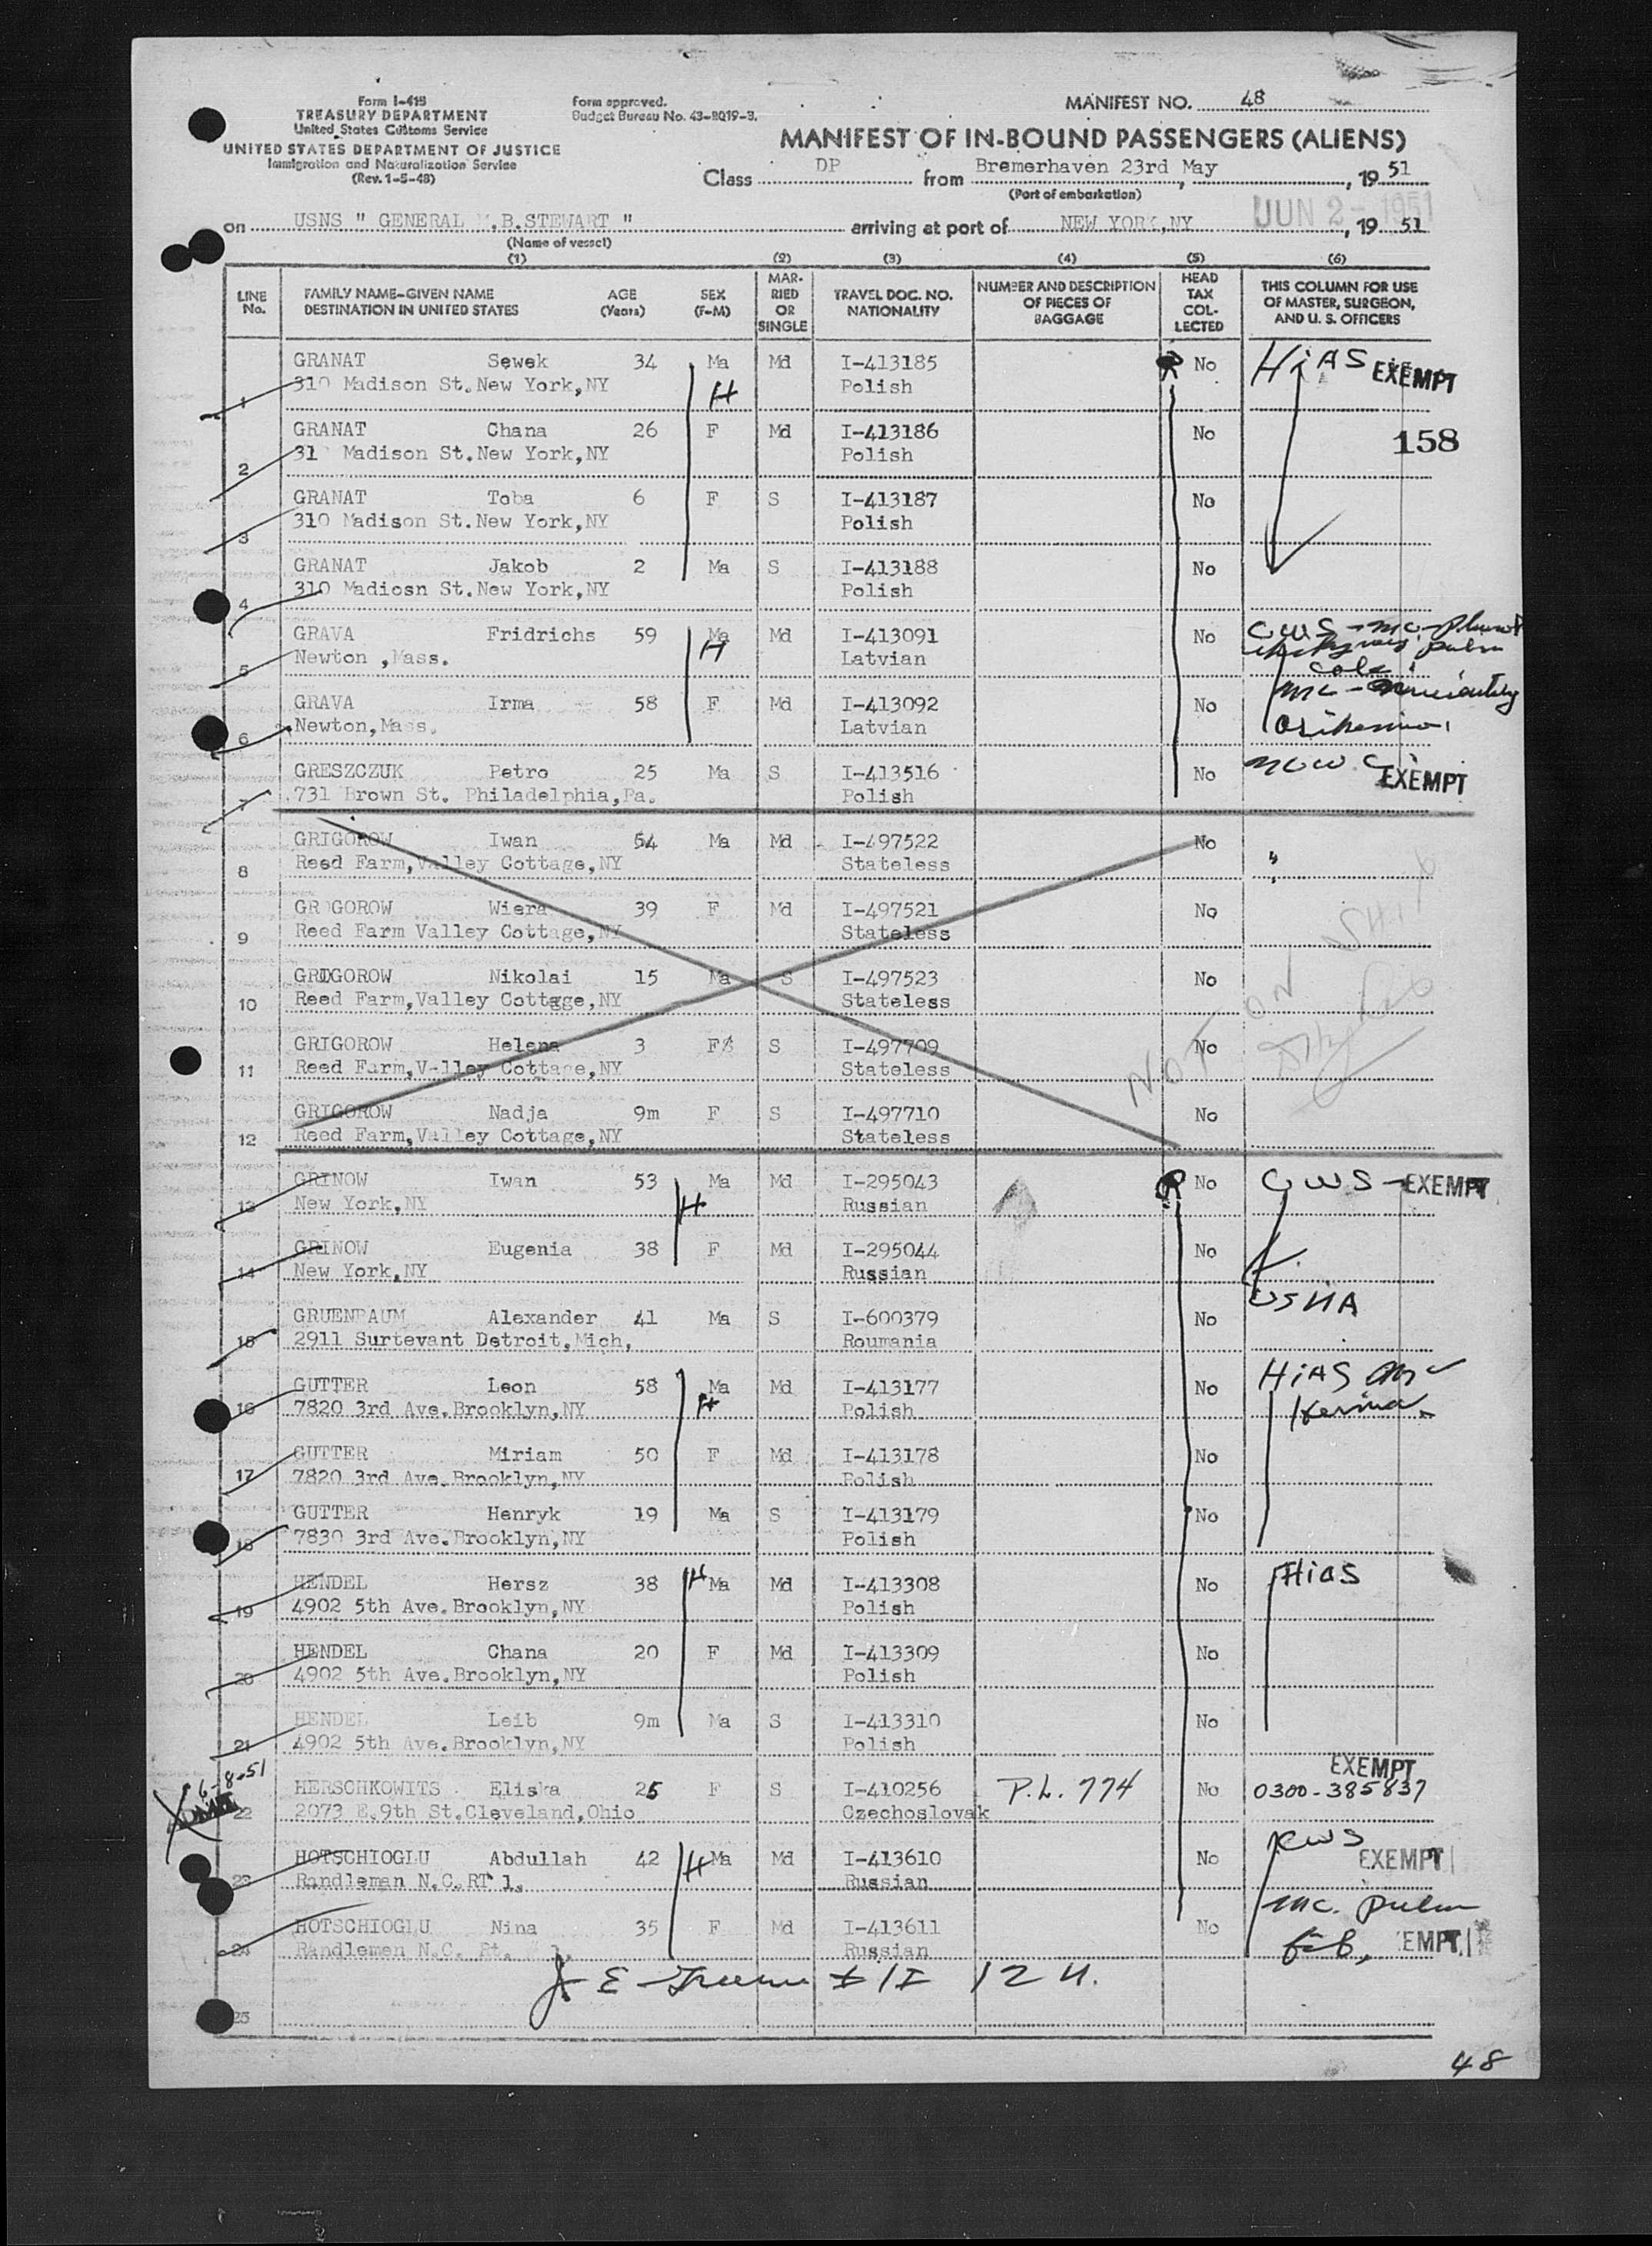 Form I-415
TREASURY DEPARTMENT
United States Customs Service
UNITED STATES DEPARTMENT OF JUSTICE
Immigration and Naturalization Service
(Rev. 1-5-48)
Form approved.
Budget Bureau No. 43-R019-3.
MANIFEST NO. 48
MANIFEST OF IN-BOUND PASSENGERS (ALIENS)
Class DP from Bremerhaven 23rd May, 1951
(Port of embarkation)
on USNS " GENERAL M.B.STEWART " arriving at port of NEW YORK,NY JUN 2- 1951, 1951
(Name of vessel)
(1) (2) (3) (4) (5) (6)
LINE No. FAMILY NAME-GIVEN NAME DESTINATION IN UNITED STATES AGE (Years) SEX (F-M) MARRIED OR SINGLE TRAVEL DOC. NO. NATIONALITY NUMBER AND DESCRIPTION OF PIECES OF BAGGAGE HEAD TAX COLLECTED THIS COLUMN FOR USE OF MASTER, SURGEON, AND U. S. OFFICERS
GRANAT Sewek 34 Ma Md I-413185 R No HiAS EXEMPT
1 310 Madison St.New York,NY H Polish
GRANAT Chana 26 F Md I-413186 No 158
2 31 Madison St.New York,NY Polish
GRANAT Toba 6 F S I-413187 No
3 310 Madison St.New York,NY Polish
GRANAT Jakob 2 Ma S I-413188 No
4 310 Madiosn St.New York,NY Polish
GRAVA Fridrichs 59 Ma Md I-413091 No CWS - mc
5 Newton ,Mass. H Latvian pulm
GRAVA Irma 58 F Md I-413092 No mc -
6 Newton,Mass. Latvian
GRESZCZUK Petro 25 Ma S I-413516 No NCWC EXEMPT
7 731 Brown St. Philadelphia,Pa. Polish
GRIGOROW Iwan 54 Ma Md I-497522 No "
8 Reed Farm,Valley Cottage,NY Stateless
GRIGOROW Wiera 39 F Md I-497521 No
9 Reed Farm Valley Cottage,NY Stateless
GRIGOROW Nikolai 15 Ma S I-497523 No
10 Reed Farm,Valley Cottgge,NY Stateless
NOT ON SHIP
GRIGOROW Helena 3 F S I-497709 No
11 Reed Farm,Valley Cottage,NY Stateless
GRIGOROW Nadja 9m F S I-497710 No
12 Reed Farm,Valley Cottage,NY Stateless
GRINOW Iwan 53 Ma Md I-295043 R No CWS - EXEMPT
13 New York,NY H Russian
GRINOW Eugenia 38 F Md I-295044 No
14 New York,NY Russian
GRUENBAUM Alexander 41 Ma S I-600379 No USNA
15 2911 Surtevant Detroit,Mich, Roumania
GUTTER Leon 58 Ma Md I-413177 No HiAS mc
16 7820 3rd Ave.Brooklyn,NY H Polish
GUTTER Miriam 50 F Md I-413178 No
17 7820 3rd Ave.Brooklyn,NY Polish
GUTTER Henryk 19 Ma S I-413179 No
18 7830 3rd Ave.Brooklyn,NY Polish
HENDEL Hersz 38 H Ma Md I-413308 No Hias
19 4902 5th Ave.Brooklyn,NY Polish
HENDEL Chana 20 F Md I-413309 No
20 4902 5th Ave.Brooklyn,NY Polish
HENDEL Leib 9m Ma S I-413310 No
21 4902 5th Ave.Brooklyn,NY Polish
6-8-51 EXEMPT
HERSCHKOWITS Eliska 25 F S I-410256 P.L. 774 No 0300-385837
22 2073 E.9th St.Cleveland,Ohio Czechoslovak
HOTSCHIOGLU Abdullah 42 H Ma Md I-413610 No EXEMPT
23 Randleman N.C.RT 1. Russian
HOTSCHIOGLU Nina 35 F Md I-413611 No mc. pulm
24 Randlemen N.C. Rt. 1. Russian fib, EMPT
25
48